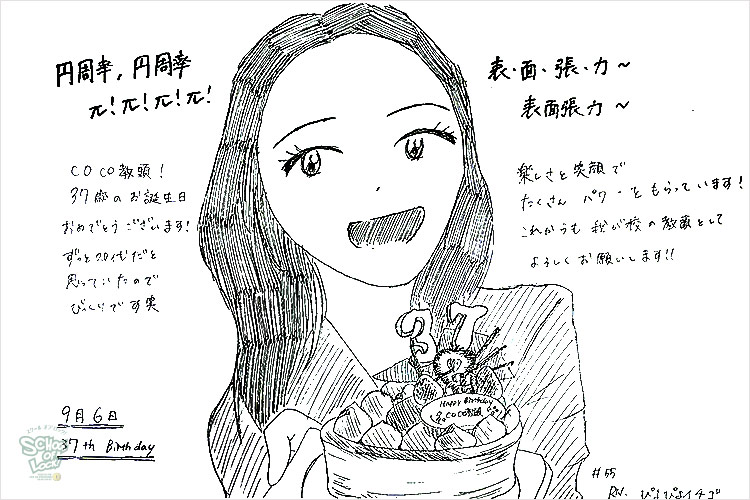 円周率, 円周率
π! π! π! π!
COCO教頭!
37歳のお誕生日
おめでとうございます!
ずっと20代だと
思っていたので
びっくりです笑
9月6日
37th Birthday
SCHOOL
OF
LOCK!
表・面・張・力~
表面張力~
楽しさと笑顔で
たくさん パワーをもらっています!
これからも 我が校の教頭として
よろしくお願いします!!
37
Happy Birthday
COCO教頭
#55
RN. ぴよぴよイチゴ